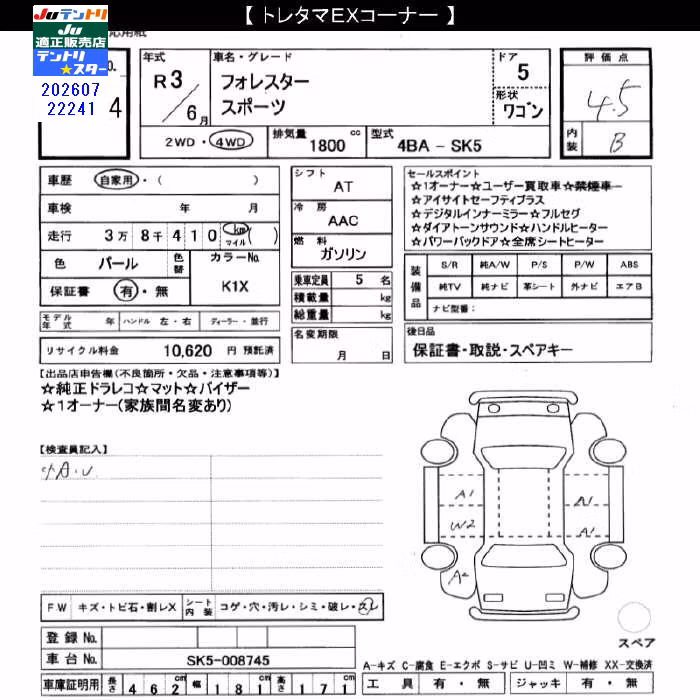 【 トレタマEXコーナー 】
JUテントリ
JU
適正販売店
テントリ
★スター
202607
22241
応用紙
No.
4
年式
R3
/6月
車名・グレード
フォレスター
スポーツ
ドア
5
形状
ワゴン
評価点
4.5
内装
B
2WD・4WD
排気量 1800 cc
型式 4BA - SK5
車歴 自家用・( )
車検 年 月
走行 3万8千410 km マイル ( )
色 パール 色替
カラーNo. K1X
保証書 有・無
モデル年式 年 ハンドル 左・右 ディーラー・並行
リサイクル料金 10,620 円 預託済
シフト
AT
冷房
AAC
燃料
ガソリン
乗車定員 5 名
積載量 kg
総重量 kg
名変期限
月 日
セールスポイント
☆1オーナー☆ユーザー買取車☆禁煙車ー
☆アイサイトセーフティプラス
☆デジタルインナーミラー☆フルセグ
☆ダイアトーンサウンド☆ハンドルヒーター
☆パワーバックドア☆全席シートヒーター
装備品
S/R 純A/W P/S P/W ABS
純TV 純ナビ 革シート 外ナビ エアB
ナビ型番:
後日品
保証書・取説・スペアキー
【出品店申告欄(不良箇所・欠品・注意事項等)】
☆純正ドラレコ☆マット☆バイザー
☆1オーナー(家族間名変あり)
【検査員記入】
小A.U
A1
A1
W2
A1
A2
スペア
FW キズ・トビ石・割レX
シート内装 コゲ・穴・汚レ・シミ・破レ・スレ
登録 No.
車台 No. SK5-008745
車庫証明用 長さ 462cm 幅 181cm 高さ 171cm
A-キズ C-腐食 E-エクボ S-サビ U-凹ミ W-補修 XX-交換済
工具 有・無 ジャッキ 有・無